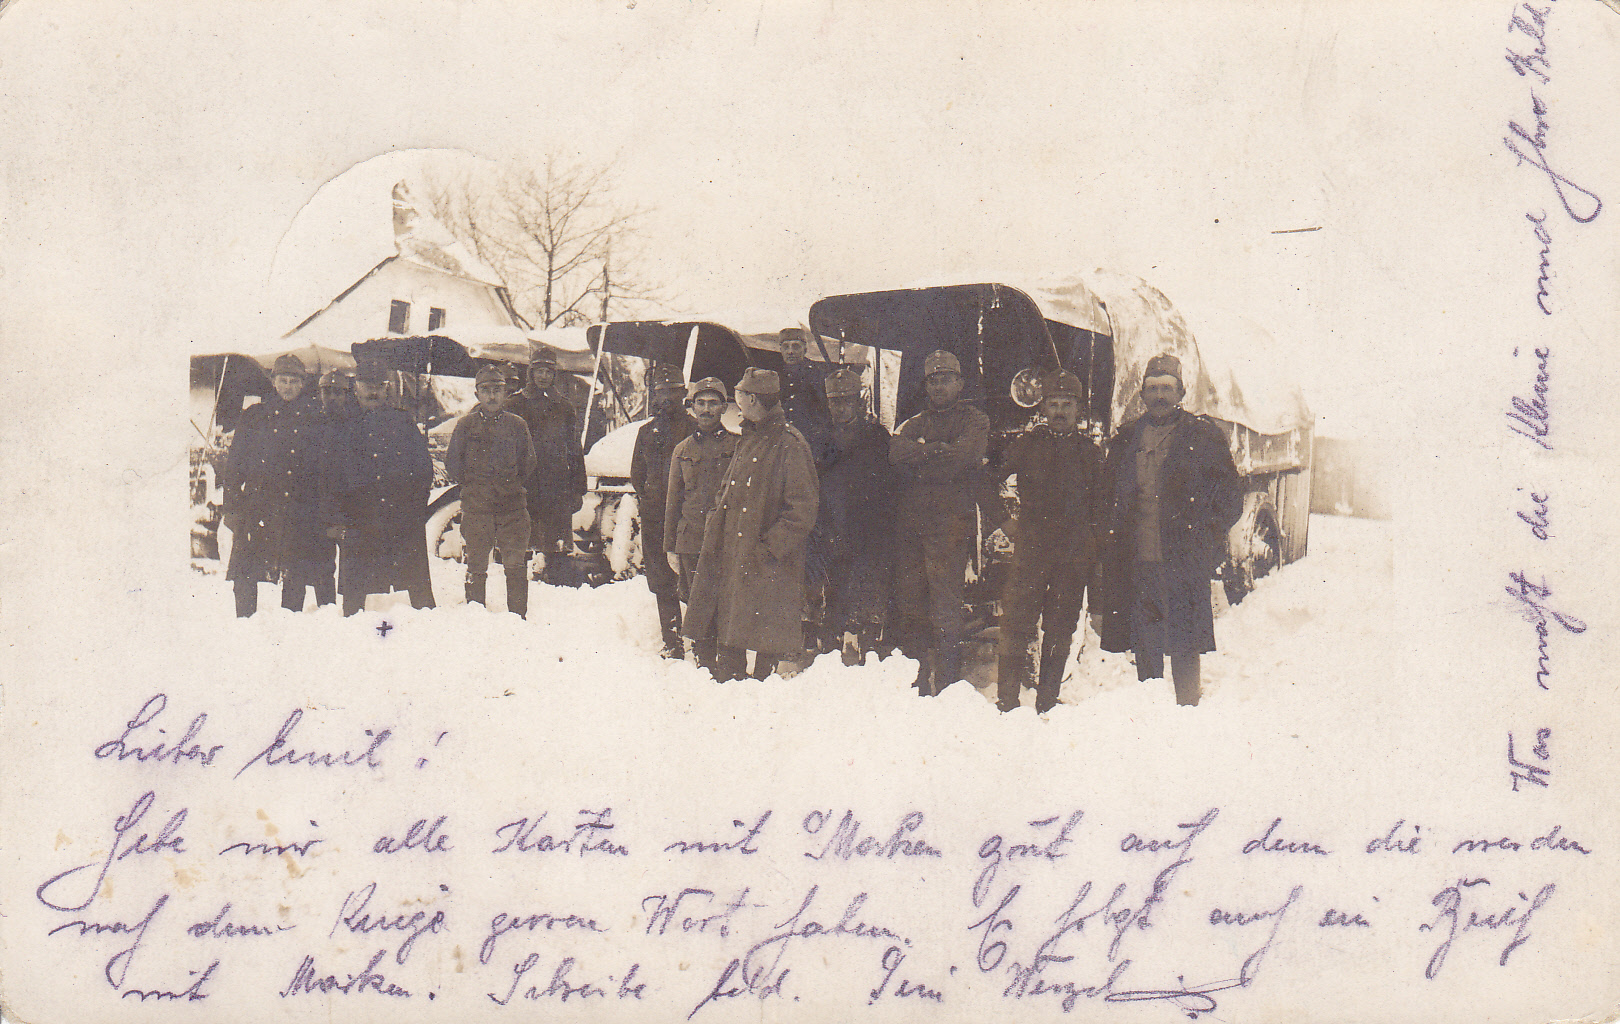 Lieber Emil!
Hebe mir alle Karten mit Marken gut auf denn die werden
nach dem Kriege großen Wert haben. Es folgt auch ein Brief
mit Marken. Schreibe bald. Dein Wenzel
Was macht die Kleine und Ihre Bild.